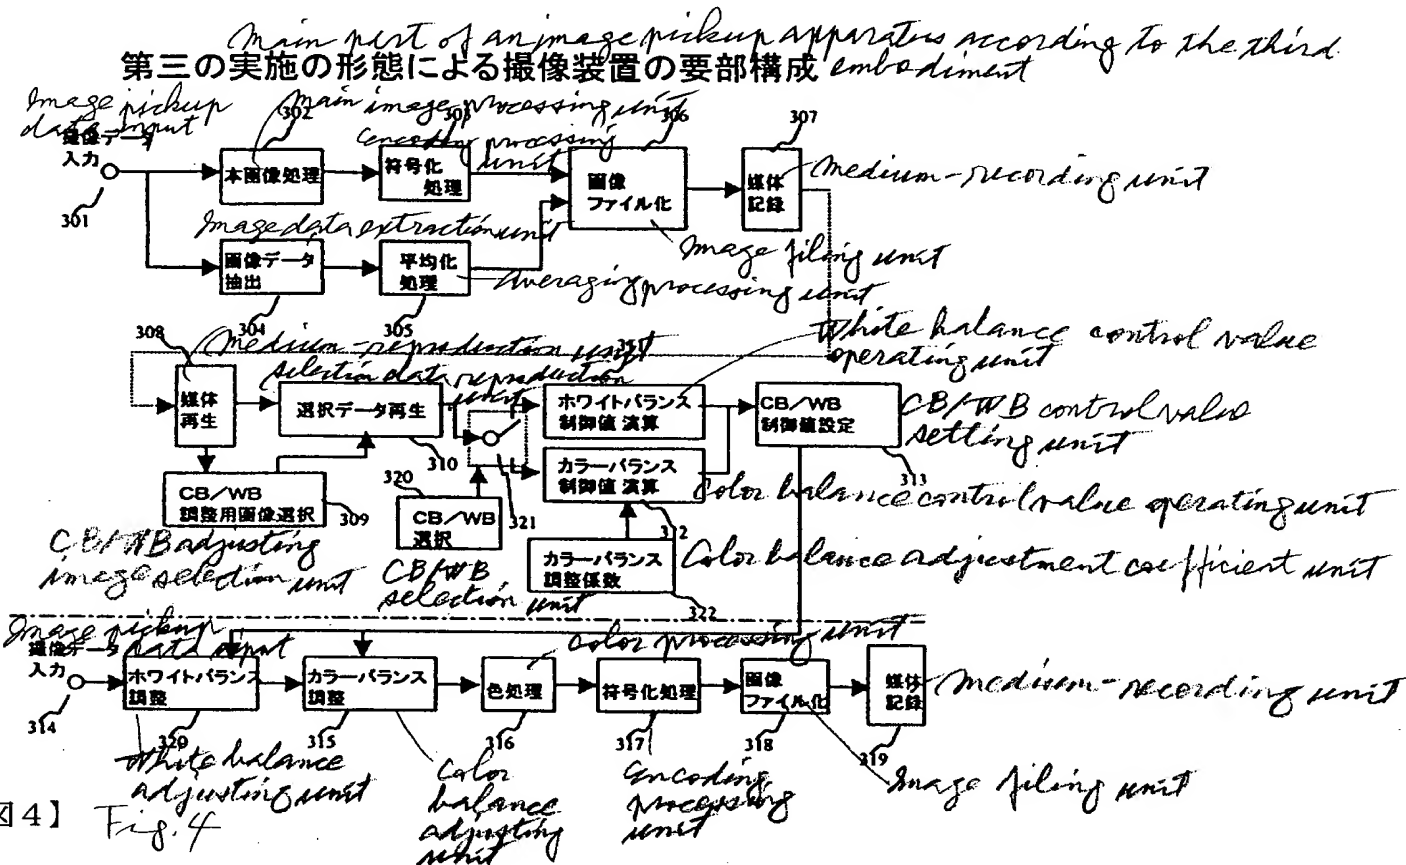 Main part of an image pickup apparatus according to the third
第三の実施の形態による撮像装置の要部構成 embodiment
Image pickup
data input
撮像データ
入力
301
302
Main image processing unit
本画像処理
303
Encoding processing
unit
符号化
処理
306
画像
ファイル化
Image filing unit
307
媒体
記録
Medium-recording unit
Image data extraction unit
画像データ
抽出
304
平均化
処理
305
Averaging processing unit
308
Medium-reproduction unit
媒体
再生
selection data reproduction
unit
選択データ再生
310
311
White balance control value
operating unit
ホワイトバランス
制御値演算
CB/WB
制御値設定
CB/WB control value
setting unit
313
CB/WB
調整用画像選択
309
CB/WB adjusting
image selection
unit
320
CB/WB
選択
321
CB/WB
selection unit
カラーバランス
制御値演算
312
Color balance control value operating unit
カラーバランス
調整係数
322
Color balance adjustment coefficient unit
Image pickup
data input
撮像データ
入力
314
ホワイトバランス
調整
320
White balance
adjusting unit
カラーバランス
調整
315
Color
balance
adjusting
unit
Color processing unit
色処理
316
符号化処理
317
Encoding
processing
unit
画像
ファイル化
318
Image filing unit
媒体
記録
319
Medium-recording unit
図4】 Fig. 4